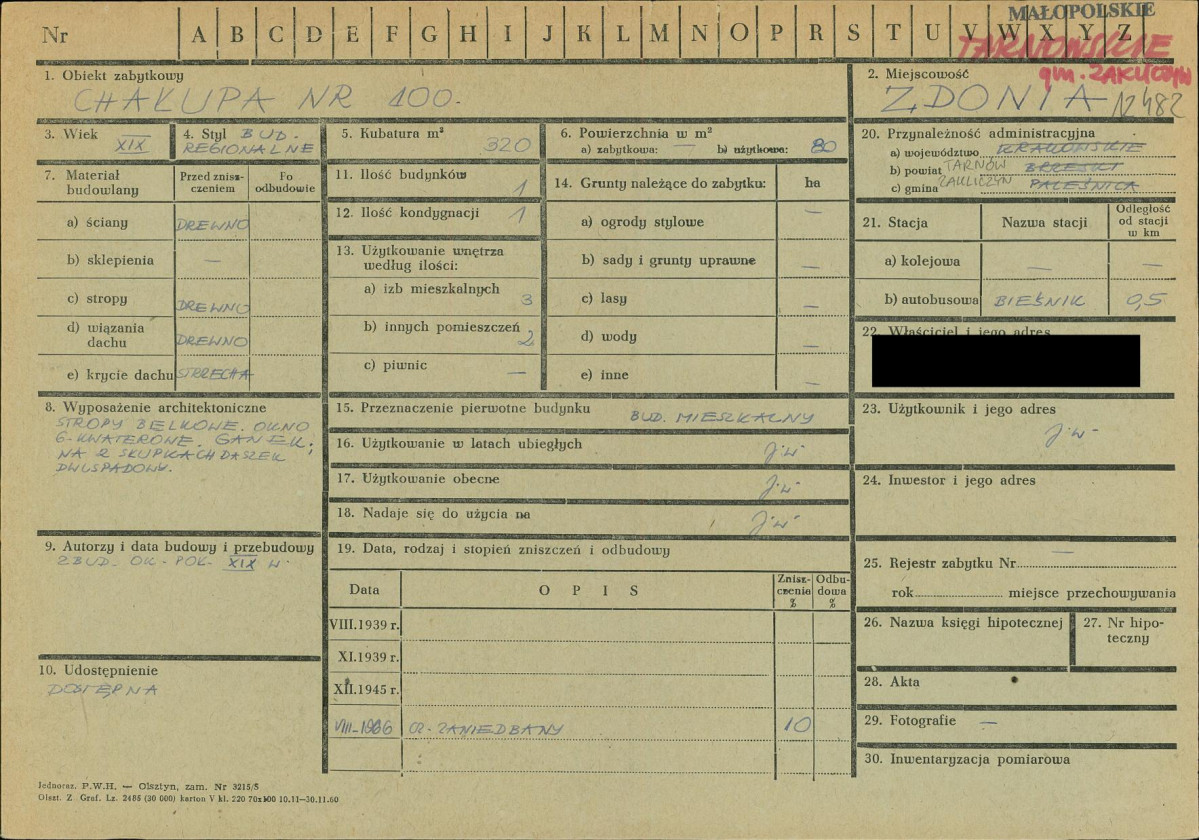 Nr A B C D E F G H I J K L M N O P R S T U V W X Y Z
MAŁOPOLSKIE
TARNOWSKIE
gm. ZAKLICZYN
1. Obiekt zabytkowy
CHAŁUPA NR 100.
2. Miejscowość
ZDONIA 12482
3. Wiek
XIX
4. Styl BUD.
REGIONALNE
5. Kubatura m²
320
6. Powierzchnia w m²
a) zabytkowa: — b) użytkowa: 80
20. Przynależność administracyjna
a) województwo KRAKOWSKIE
b) powiat TARNÓW BRZESKI
c) gmina ZAKLICZYN PALEŚNICA
7. Materiał budowlany
Przed zniszczeniem
Po odbudowie
a) ściany DREWNO
b) sklepienia —
c) stropy DREWNO
d) wiązania dachu DREWNO
e) krycie dachu STRZECHA
11. Ilość budynków 1
12. Ilość kondygnacji 1
13. Użytkowanie wnętrza
według ilości:
a) izb mieszkalnych 3
b) innych pomieszczeń 2
c) piwnic —
14. Grunty należące do zabytku: ha
a) ogrody stylowe —
b) sady i grunty uprawne —
c) lasy —
d) wody —
e) inne —
21. Stacja
Nazwa stacji
Odległość
od stacji
w km
a) kolejowa — —
b) autobusowa BIEŚNIK 0,5
22. Właściciel i jego adres
8. Wyposażenie architektoniczne
STROPY BELKOWE. OKNO
6-KWATEROWE. GANEK;
NA 2 SŁUPKACH DASZEK
DWUSPADOWY.
15. Przeznaczenie pierwotne budynku BUD. MIESZKALNY
16. Użytkowanie w latach ubiegłych j.w.
17. Użytkowanie obecne j.w.
18. Nadaje się do użycia na j.w.
23. Użytkownik i jego adres
j.w.
24. Inwestor i jego adres
9. Autorzy i data budowy i przebudowy
ZBUD. OK. POŁ. XIX W.
19. Data, rodzaj i stopień zniszczeń i odbudowy
Data
O P I S
Zniszczenia
%
Odbudowa
%
VIII.1939 r.
XI.1939 r.
XII.1945 r.
VIII-1966 CZ. ZANIEDBANY 10
25. Rejestr zabytku Nr —
rok miejsce przechowywania
26. Nazwa księgi hipotecznej
27. Nr hipoteczny
10. Udostępnienie
DOSTĘPNA
28. Akta
29. Fotografie —
30. Inwentaryzacja pomiarowa
Jednoraz. P.W.H. — Olsztyn, zam. Nr 3215/S
Olszt. Z Graf. Lz. 2485 (30 000) karton V kl. 220 70x100 10.11—30.11.60